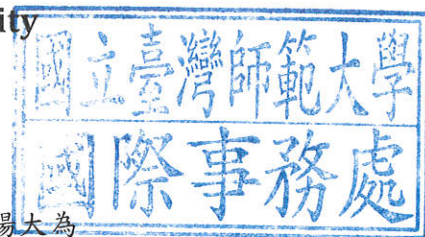 ity
國立臺灣師範大學
國際事務處
楊大為